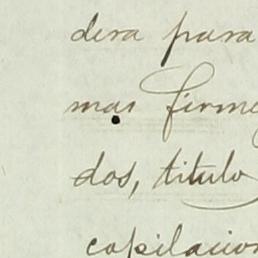 dera para
mas firme
dos, titulo
copilacion